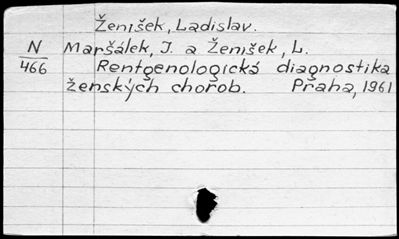 Ženíšek, Ladislav.
N Maršálek, J. a Ženíšek, L.
466 Rentgenologická diagnostika
ženských chorob. Praha, 1961